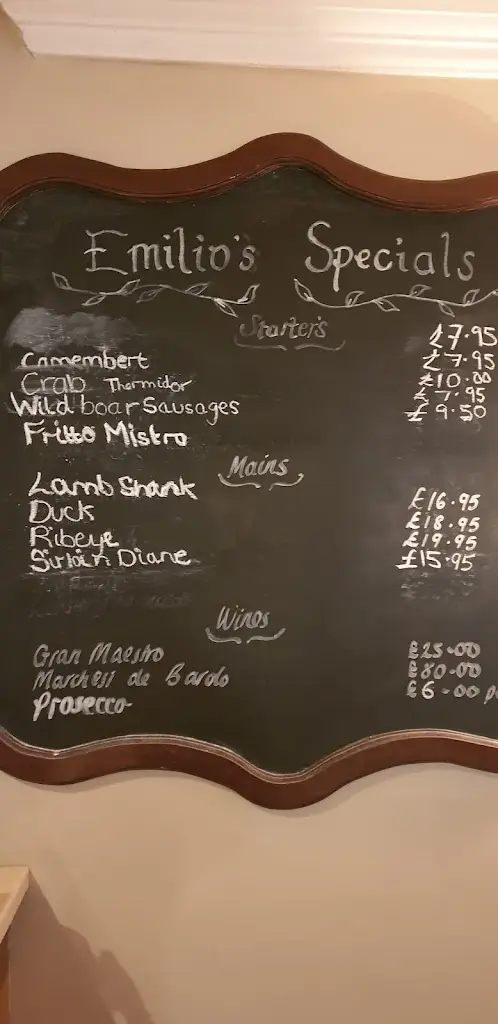 Emilio's Specials
Starters £7.95
Camembert £7.95
Crab Thermidor £10.00
Wild boar Sausages £7.95
Fritto Mistro £9.50
Mains
Lamb Shank £16.95
Duck £18.95
Ribeye £19.95
Sirloin Diane £15.95
Wines
Gran Maestro £25.00
Marchesi de Bardo £80.00
Prosecco £6.00